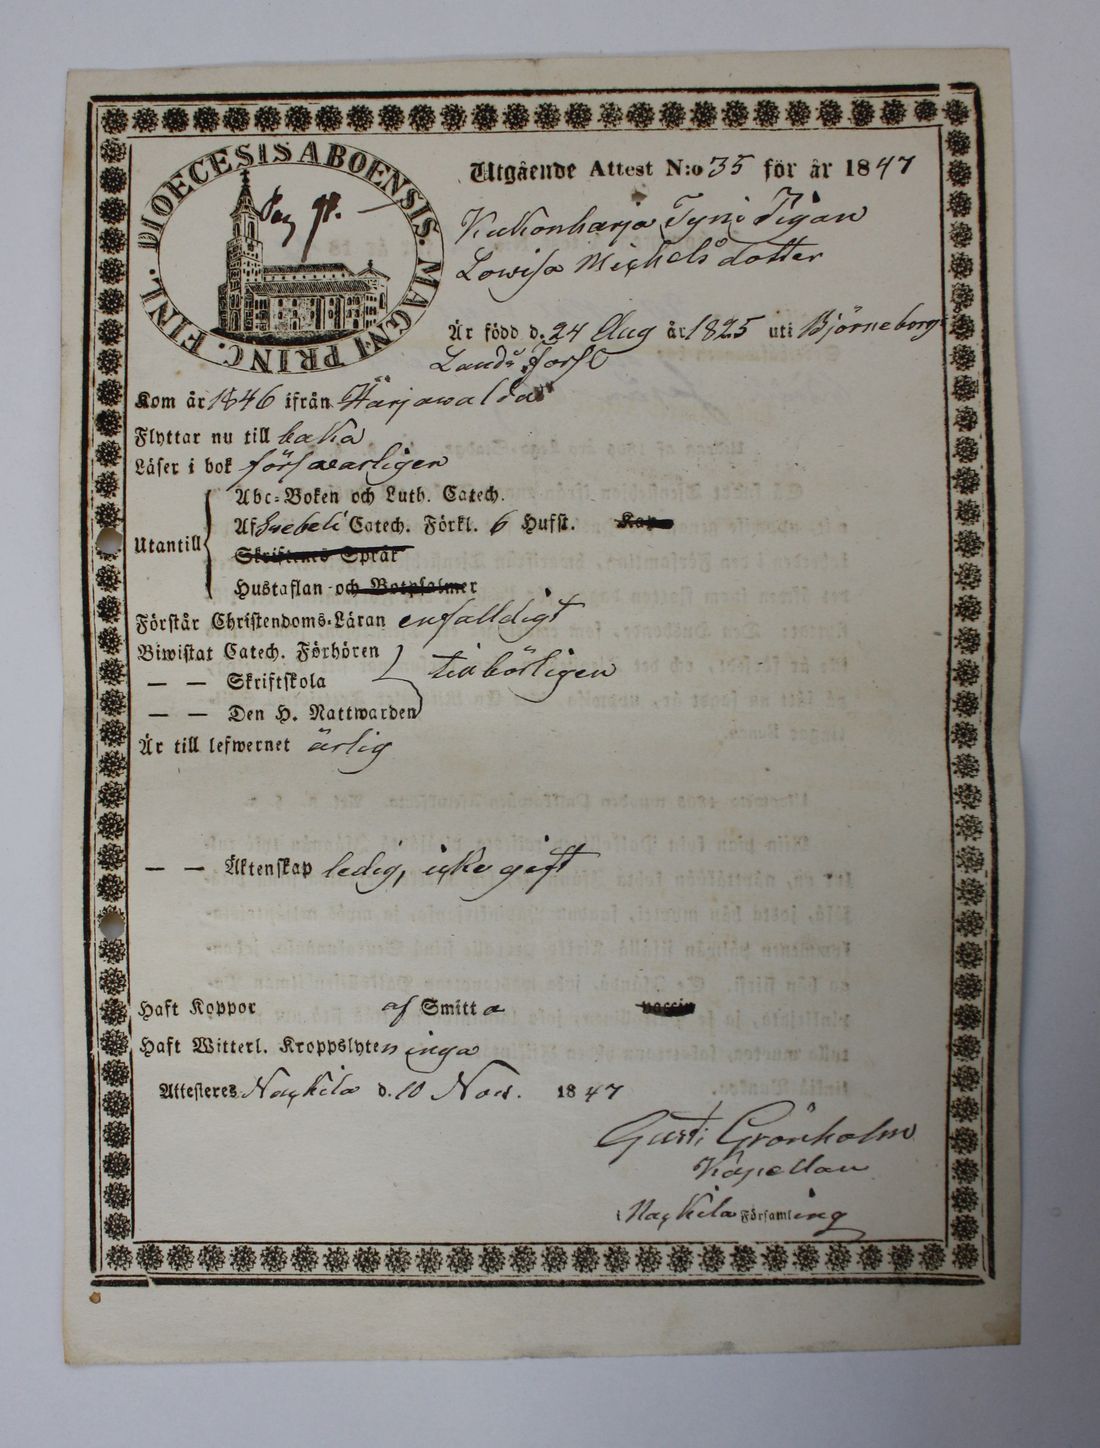 DIOECESIS ABOENSIS. MAGNI PRINC. FINL.
Pag 91.
Utgående Attest N:o 35 för år 1847
Kukonharja Tyni Pigan
Lowisa Michelsdotter
Är född d. 24 Aug år 1825 uti Björneborgs
Lands förs:
Kom år 1846 ifrån Harjawalda
Flyttar nu till baka
Läser i bok försvarligen
Utantill
Abc-Boken och Luth. Catech.
Af Svebeli Catech. Förkl. 6 Hufst. Kap
Skriftenes Språk
Hustaflan och Botpsalmer
Förstår Christendoms-Läran enfalldigt
Biwistat Catech. Förhören
— — Skriftskola tilbörligen
— — Den H. Nattwarden
Är till lefwernet ärlig
— — Äktenskap ledig, icke gift
Haft Koppor af Smitta vaccin
Haft Witterl. Kroppslyten inga
Attesteres Nackila d. 10 Nov. 1847
Gust: Grönholm
Kapellan
i Nackila Församling